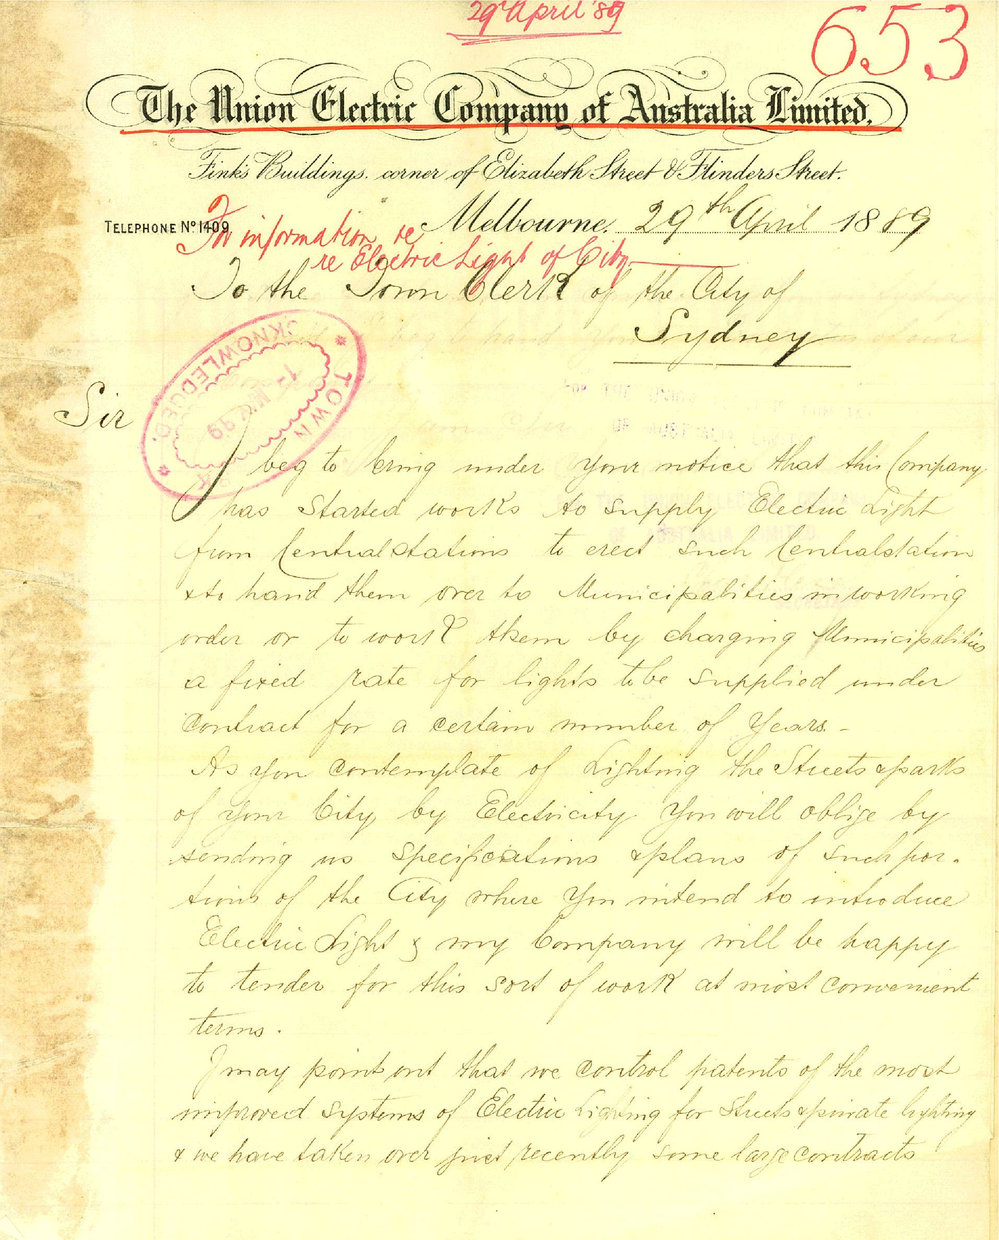 29 April '89
653
The Union Electric Company of Australia Limited,
Fink's Buildings, corner of Elizabeth Street & Flinders Street.
TELEPHONE Nº 1409
Melbourne, 29th April 1889
For information re
re Electric Light of City
To the Town Clerk of the City of
Sydney
TOWN CLERK
ACKNOWLEDGED.
MAY. 89
Sir
I beg to bring under your notice that this Company
has started works to supply Electric Light
from Central Stations to erect such Central station
& to hand them over to Municipalities in working
order or to work them by charging Municipalities
a fixed rate for lights to be supplied under
contract for a certain number of Years. -
As you contemplate of Lighting the Streets & parks
of your City by Electricity You will oblige by
sending us specifications & plans of such por-
tions of the City where You intend to introduce
Electric Light & my Company will be happy
to tender for this sort of work at most convenient
terms.
I may point out that we control patents of the most
improved systems of Electric Lighting for Streets & private lighting
& we have taken over just recently some large contracts